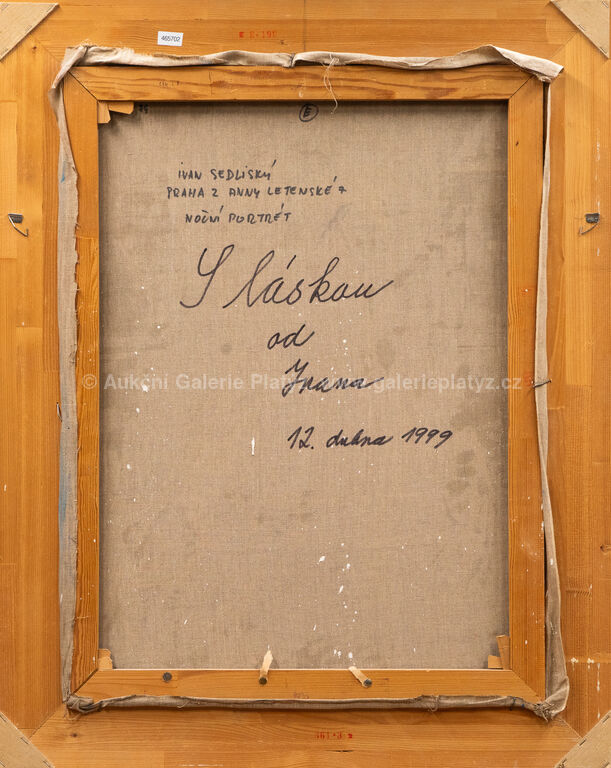 465702
E
IVAN SEDLISKÝ
PRAHA 2 ANNY LETENSKÉ 7
NOČNÍ PORTRÉT
S láskou
od
Ivana
© Aukční Galerie Platýz www.galerieplatyz.cz
12. dubna 1999